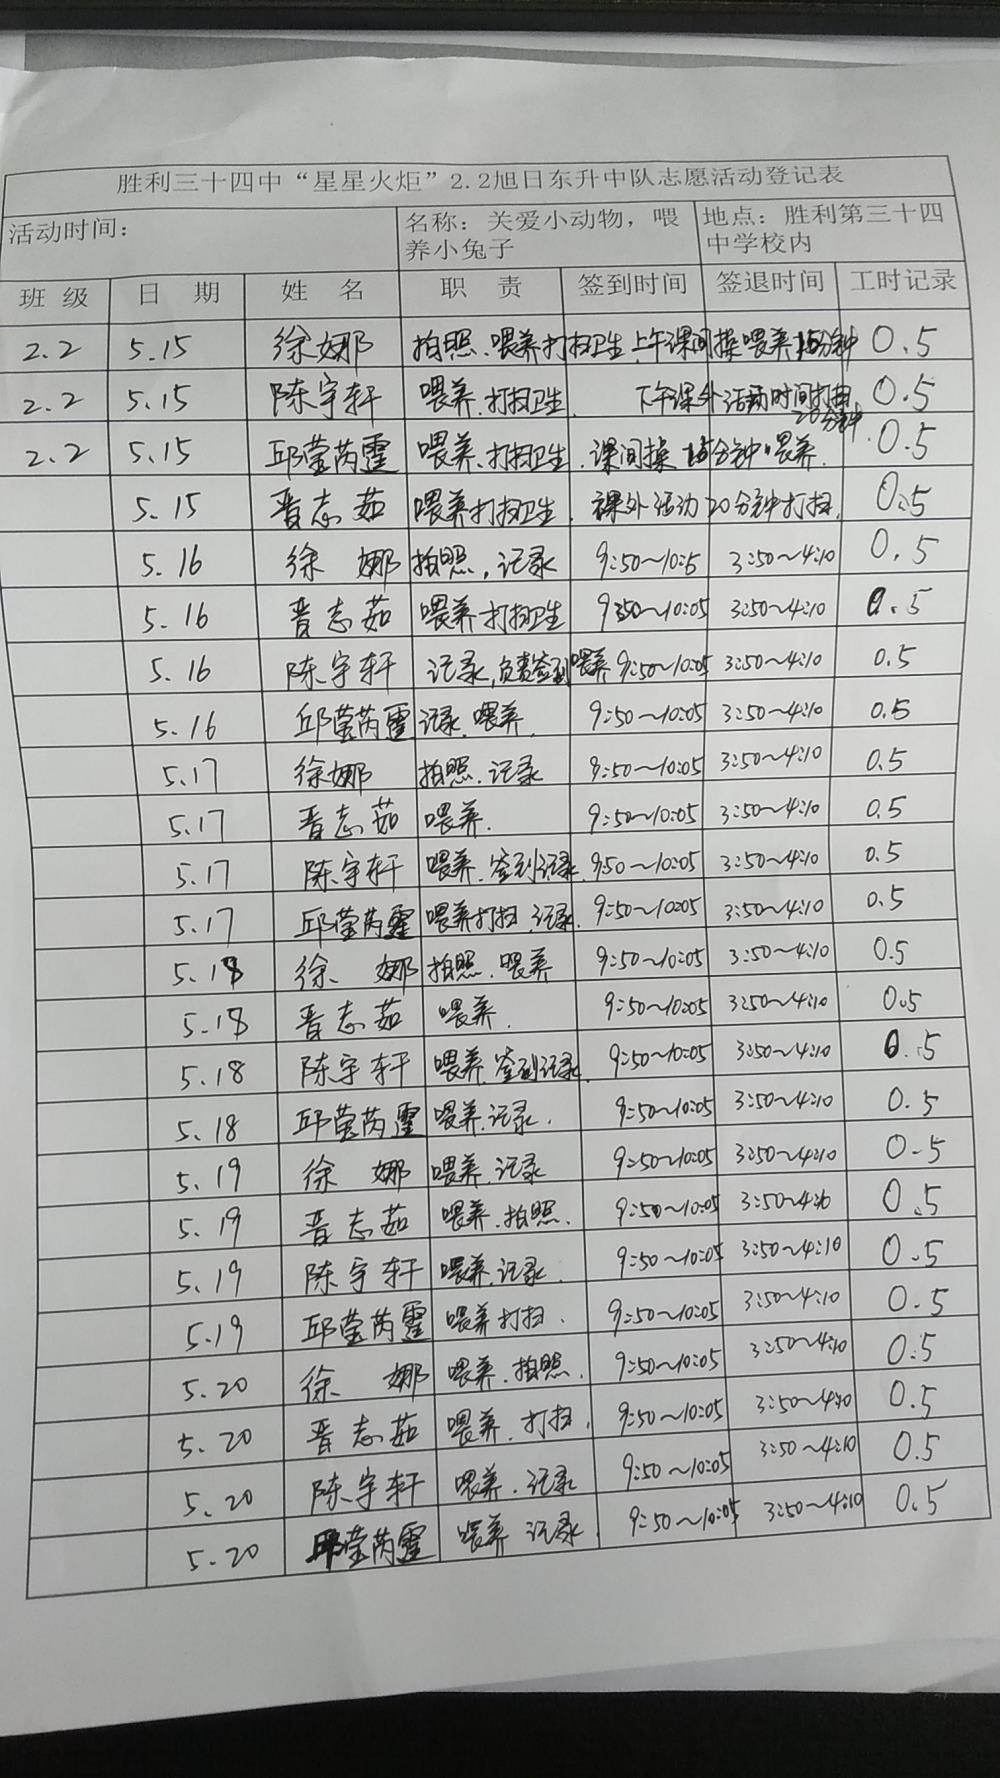 胜利三十四中“星星火炬”2.2旭日东升中队志愿活动登记表
活动时间： 名称：关爱小动物，喂养小兔子 地点：胜利第三十四中学校内
班级 日期 姓名 职责 签到时间 签退时间 工时记录
2.2 5.15 徐娜 拍照、喂养打扫卫生 上午课间操喂养15分钟 0.5
2.2 5.15 陈宇轩 喂养、打扫卫生. 下午课外活动时间打扫20分钟. 0.5
2.2 5.15 邱莹芮霆 喂养、打扫卫生. 课间操15分钟喂养. 0.5
5.15 晋志茹 喂养打扫卫生. 课外活动20分钟打扫. 0.5
5.16 徐娜 拍照，记录 9:50~10:5 3:50~4:10 0.5
5.16 晋志茹 喂养打扫卫生 9:50~10:05 3:50~4:10 0.5
5.16 陈宇轩 记录，负责签到喂养 9:50~10:05 3:50~4:10 0.5
5.16 邱莹芮霆 记录、喂养. 9:50~10:05 3:50~4:10 0.5
5.17 徐娜 拍照、记录 9:50~10:05 3:50~4:10 0.5
5.17 晋志茹 喂养. 9:50~10:05 3:50~4:10 0.5
5.17 陈宇轩 喂养、签到记录. 9:50~10:05 3:50~4:10 0.5
5.17 邱莹芮霆 喂养打扫、记录. 9:50~10:05 3:50~4:10 0.5
5.18 徐娜 拍照、喂养 9:50~10:05 3:50~4:10 0.5
5.18 晋志茹 喂养. 9:50~10:05 3:50~4:10 0.5
5.18 陈宇轩 喂养、签到记录. 9:50~10:05 3:50~4:10 0.5
5.18 邱莹芮霆 喂养、记录. 9:50~10:05 3:50~4:10 0.5
5.19 徐娜 喂养、记录 9:50~10:05 3:50~4:10 0.5
5.19 晋志茹 喂养、拍照. 9:50~10:05 3:50~4:10 0.5
5.19 陈宇轩 喂养、记录. 9:50~10:05 3:50~4:10 0.5
5.19 邱莹芮霆 喂养打扫. 9:50~10:05 3:50~4:10 0.5
5.20 徐娜 喂养、拍照. 9:50~10:05 3:50~4:10 0.5
5.20 晋志茹 喂养、打扫. 9:50~10:05 3:50~4:10 0.5
5.20 陈宇轩 喂养、记录 9:50~10:05 3:50~4:10 0.5
5.20 邱莹芮霆 喂养 记录. 9:50~10:05 3:50~4:10 0.5